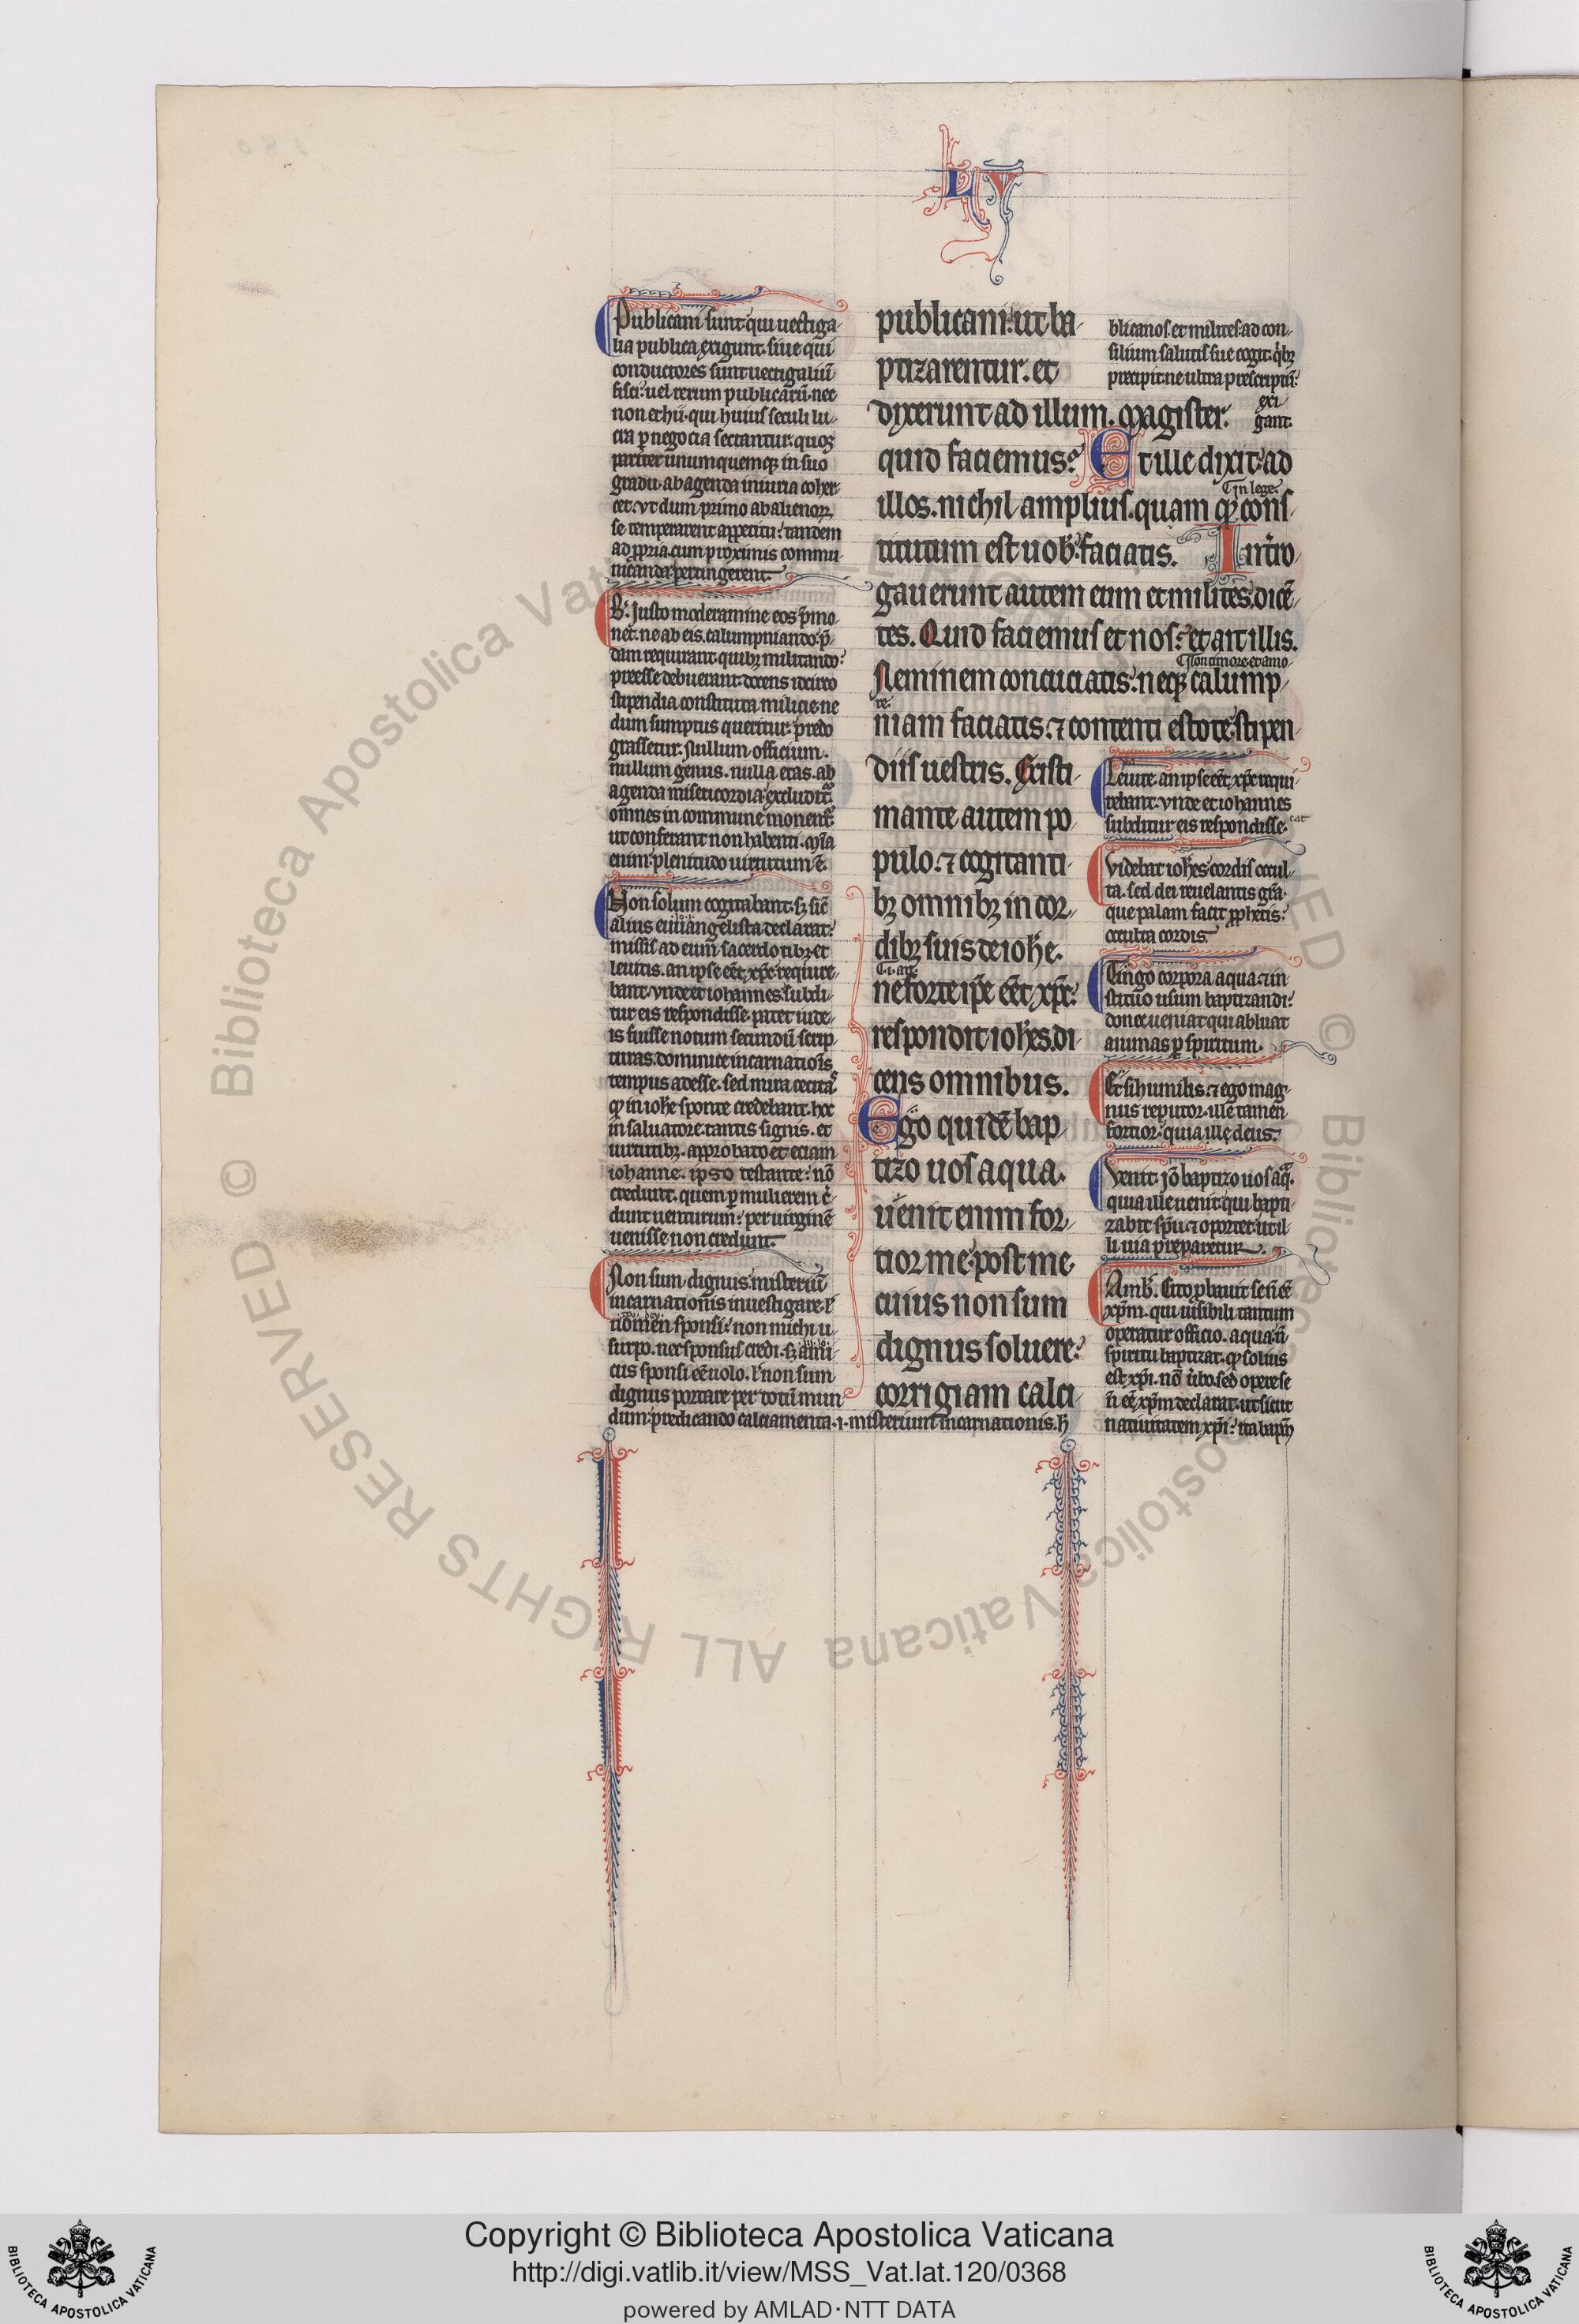 LV
Publicani sunt qui uectiga-
lia publica exigunt. siue qui
conductores sunt uectigaliũ
fisci: uel rerum publicarũ. nec
non et hii. qui huius seculi lu-
cra ꝑ negocia sectantur. quos
pariter unumquemqꝫ in suo
gradu. ab agenda iniuria coher-
cet. vt dum primo ab alienoꝝ
se temperarent appetitu: tandem
ad ꝓpria cum proximis commu-
nicanda pertingerent.
B'. Iusto moderamine eos p̃mo-
net. ne ab eis calumpniando p̃-
dam requirant quibꝫ militando:
preesse debuerant. docens idcirco
stipendia constituta milicie. ne
dum sumptus queritur: predo
grassetur. Nullum officium.
nullum genus. nulla etas. ab
agenda misericordia excludit᷑.
omnes in commune monent᷑
ut conferant non habenti. mĩa
enim plenitudo uirtutum ẽ.
Non solum cogitabant. sꝫ sic̃
alius euuangelista declarat:
missis ad eum sacerdotibꝫ et
leuitis. an ipse eẽt xp̃c require-
bant. vnde et iohannes subdi-
tur eis respondisse. patet iude-
is fuisse notum secundũ scrip-
turas. dominice incarnatiõis
tempus adesse. sed mira cecitas
ꝙ in ioh̃e sponte credebant. hoc
in saluatore tantis signis. et
uirtutibꝫ. approbato et etiam
iohanne. ipso testante: nõ
credunt. quem ꝑ mulierem c̃-
dunt uenturum: per uirginẽ
uenisse non credunt.
Non sum dignus misteriũ
incarnationis inuestigare. ł
nomen sponsi: non michi u-
surpo. nec sponsus credi. sꝫ ami-
cus sponsi eẽ uolo. ł non sum
dignus portare per totũ mun-
dum predicando calciamenta .i. misterium incarnationis. h̃
publicani: ut ba-
ptizarentur. et
dixerunt ad illum. Magister.
quid faciemus? Et ille dixit: ad
illos. nichil amplius. quam ꝙ cons-
titutum est uob̃: faciatis. Int̃ro-
gauerunt autem eum et milites. dicẽ-
tes. Quid faciemus et nos? et ait illis.
Neminem concuciatis: neqꝫ calump-
niam faciatis: ⁊ contenti estote: stipen-
diis uestris. Existi-
mante autem po-
pulo: ⁊ cogitanti-
bꝫ omnibꝫ in cor-
dibꝫ suis de ioh̃e.
ne forte ip̃e eẽt xp̃c:
respondit ioh̃es. di-
cens omnibus.
Ego quidẽ bap-
tizo uos aqua.
uenit enim for-
tior me: post me
cuius non sum
dignus soluere:
corrigiam calci-
blicanos. et milites: ad con-
silium salutis sue cogit. q̃ibꝫ
precipit: ne ultra prescriptũ:
exi-
gant.
In lege.
Non timore. et amo-
re.
Leuite. an ipse eẽt xp̃c requi-
rebant. vnde et iohannes
subditur eis respondisse.
Videbat ioh̃es cordis occul-
ta. sed dei reuelantis gr̃a.
que palam facit ꝓphetis:
occulta cordis.
Tingo corpora aqua: ⁊ in-
stituo usum baptizandi:
donec ueniat qui abluat
animas ꝑ spiritum.
Et si humilis: ⁊ ego mag-
nus reputor. ille tamen
fortior: quia ille deus.
Venit. Iõ baptizo uos aq̃.
quia ille uenit. qui bapti-
zabit sp̃u. ⁊ oportet: ut il-
li uia preparetur.
Amb̃. Cito ꝓbauit se ñ eẽ
xp̃m. qui uisibili tantum
operatur officio. aqua ñ
spiritu baptizat. ꝙ solius
est xp̃i. nõ ũbo. sed opere se
ñ eẽ xp̃m declarat. ut sicut
natiuitatem xp̃i: ita bapm̃
© Biblioteca Apostolica Vaticana ALL RIGHTS RESERVED
Copyright © Biblioteca Apostolica Vaticana
http://digi.vatlib.it/view/MSS_Vat.lat.120/0368
powered by AMLAD·NTT DATA
BIBLIOTECA APOSTOLICA VATICANA
BIBLIOTECA APOSTOLICA VATICANA